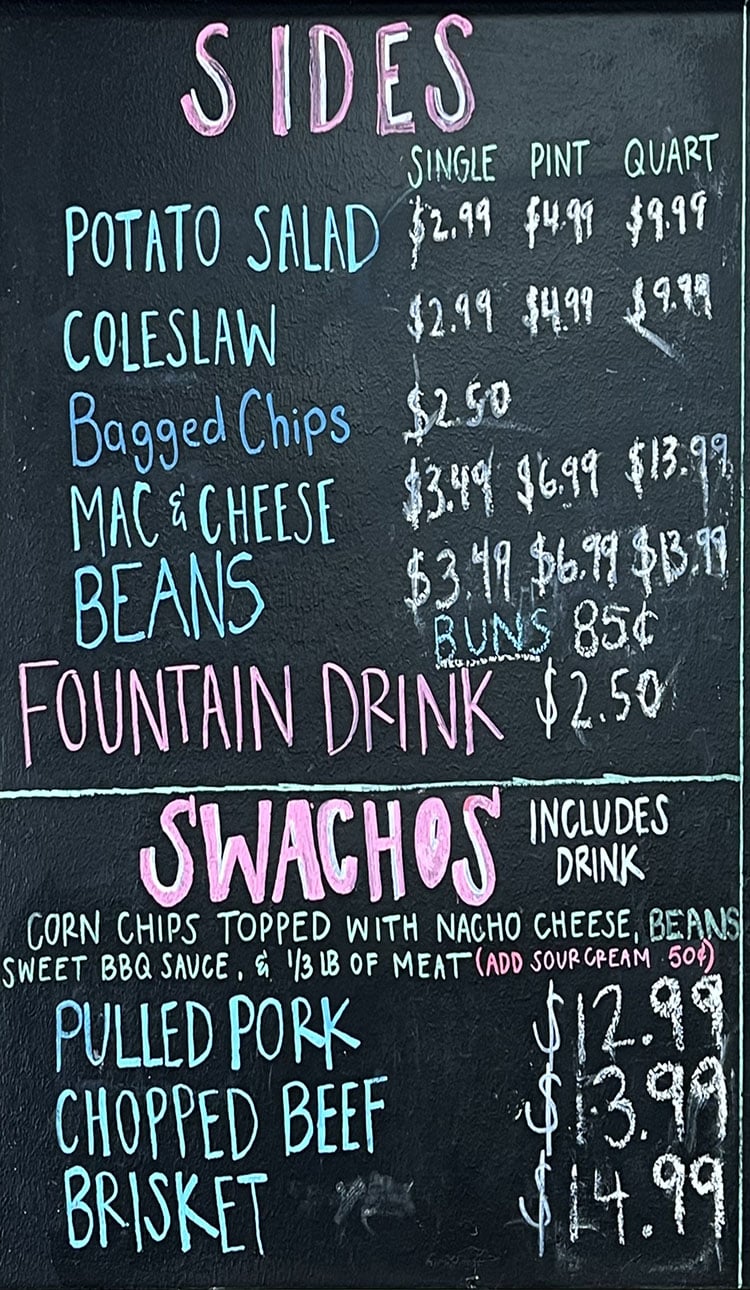 SIDES
SINGLE PINT QUART
POTATO SALAD $2.99 $4.99 $9.99
COLESLAW $2.99 $4.99 $9.99
Bagged Chips $2.50
MAC & CHEESE $3.49 $6.99 $13.99
BEANS $3.49 $6.99 $13.99
BUNS 85¢
FOUNTAIN DRINK $2.50
SWACHOS INCLUDES
DRINK
CORN CHIPS TOPPED WITH NACHO CHEESE, BEANS
SWEET BBQ SAUCE, & 1/3 LB OF MEAT (ADD SOUR CREAM 50¢)
PULLED PORK $12.99
CHOPPED BEEF $13.99
BRISKET $14.99